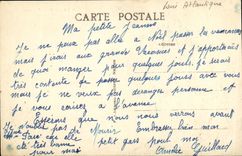 Loire Atlantique
CARTE POSTALE
Ma petite Jeanne
Je ne peux pas aller à passer les vacances
mais j'irai aux grandes vacances et j'apporterai
de quoi manger pour quelques jours. Je suis
très contente de passer quelques jours avec vous
mais je ne veux pas déranger personne et
je vous écrirez à l'avance
Espérons que nous nous verrons avant
Je n'oublie pas de Nourir. Embrassez bien mon
petit gars pour moi
Amélie Guillard